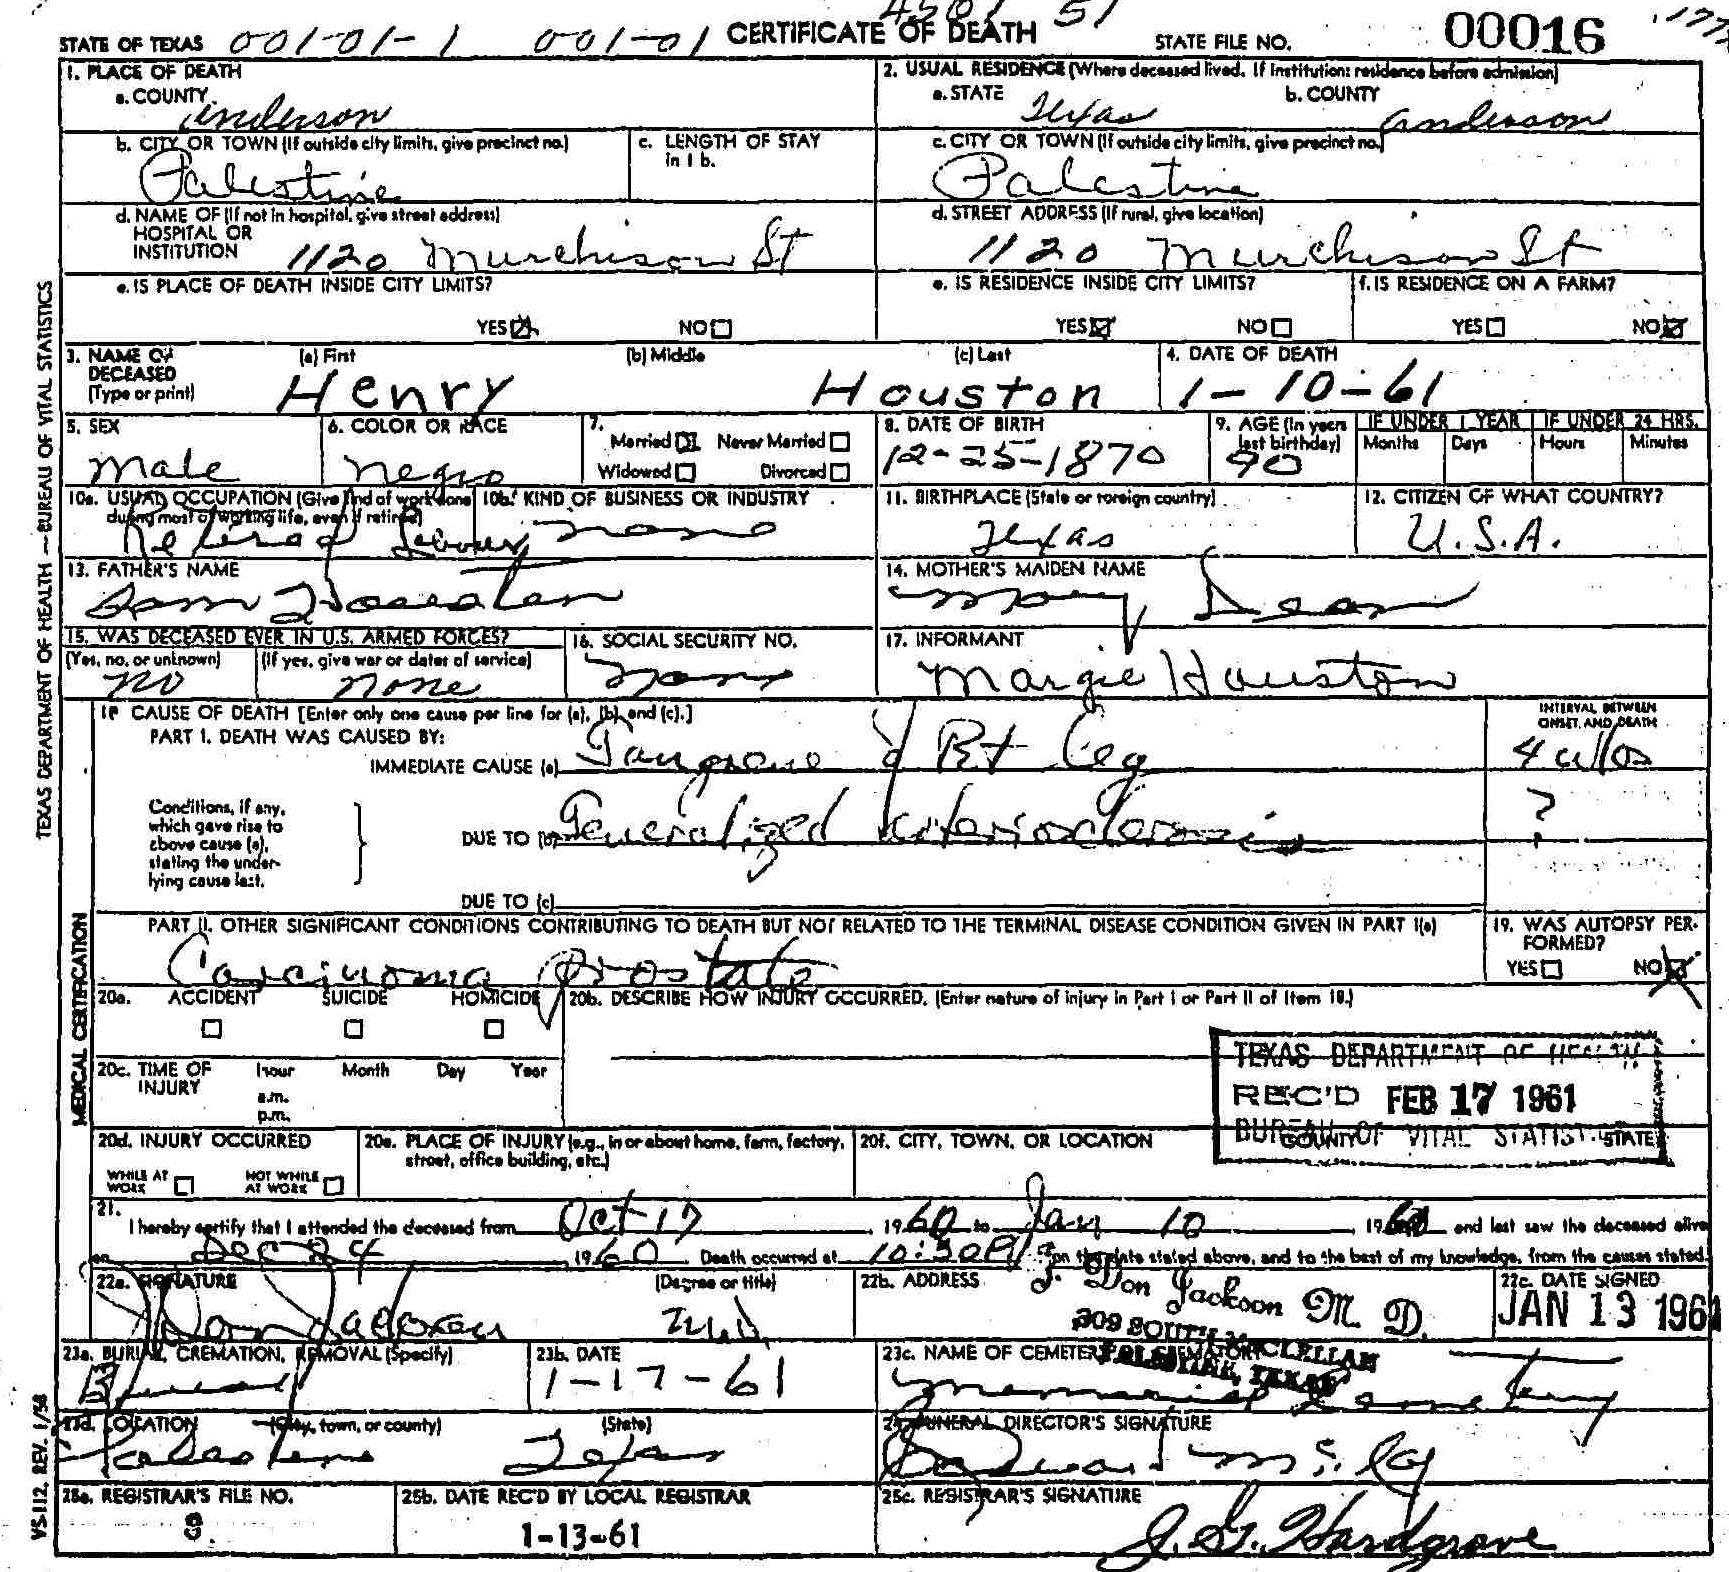 4501 51
STATE OF TEXAS 001-01-1 001-01 CERTIFICATE OF DEATH STATE FILE NO. 00016
1. PLACE OF DEATH
a. COUNTY Anderson
2. USUAL RESIDENCE (Where deceased lived. If institution: residence before admission)
a. STATE Texas b. COUNTY Anderson
b. CITY OR TOWN (If outside city limits, give precinct no.) Palestine
c. LENGTH OF STAY in 1 b.
c. CITY OR TOWN (If outside city limits, give precinct no.) Palestine
d. NAME OF (If not in hospital, give street address) HOSPITAL OR INSTITUTION 1120 Murchison St
d. STREET ADDRESS (If rural, give location) 1120 Murchison St
e. IS PLACE OF DEATH INSIDE CITY LIMITS?
YES NO
e. IS RESIDENCE INSIDE CITY LIMITS?
YES NO
f. IS RESIDENCE ON A FARM?
YES NO
3. NAME OF DECEASED (Type or print) (a) First (b) Middle (c) Last
Henry Houston
4. DATE OF DEATH
1-10-61
5. SEX
Male
6. COLOR OR RACE
Negro
7. Married Never Married
Widowed Divorced
8. DATE OF BIRTH
12-25-1870
9. AGE (In years last birthday)
90
IF UNDER 1 YEAR IF UNDER 24 HRS.
Months Days Hours Minutes
10a. USUAL OCCUPATION (Give kind of work done during most of working life, even if retired)
Retired Laborer
10b. KIND OF BUSINESS OR INDUSTRY
none
11. BIRTHPLACE (State or foreign country)
Texas
12. CITIZEN OF WHAT COUNTRY?
U.S.A.
13. FATHER'S NAME
Sam Houston
14. MOTHER'S MAIDEN NAME
Mary Dean
15. WAS DECEASED EVER IN U.S. ARMED FORCES?
(Yes, no, or unknown) (If yes, give war or dates of service)
no none
16. SOCIAL SECURITY NO.
none
17. INFORMANT
Margie Houston
18 CAUSE OF DEATH [Enter only one cause per line for (a), (b), and (c).]
INTERVAL BETWEEN ONSET AND DEATH
PART I. DEATH WAS CAUSED BY:
IMMEDIATE CAUSE (a) Gangrene of Rt Leg
Conditions, if any, which gave rise to above cause (a), stating the underlying cause last.
DUE TO (b) Generalized Arteriosclerosis ?
DUE TO (c)
PART II. OTHER SIGNIFICANT CONDITIONS CONTRIBUTING TO DEATH BUT NOT RELATED TO THE TERMINAL DISEASE CONDITION GIVEN IN PART I(a)
Carcinoma prostate
19. WAS AUTOPSY PERFORMED?
YES NO
20a. ACCIDENT SUICIDE HOMICIDE
20b. DESCRIBE HOW INJURY OCCURRED. (Enter nature of injury in Part I or Part II of Item 18.)
20c. TIME OF INJURY Hour a.m. p.m. Month Day Year
TEXAS DEPARTMENT OF HEALTH
REC'D FEB 17 1961
BUREAU OF VITAL STATISTICS
20d. INJURY OCCURRED
WHILE AT WORK NOT WHILE AT WORK
20e. PLACE OF INJURY (e.g., in or about home, farm, factory, street, office building, etc.)
20f. CITY, TOWN, OR LOCATION COUNTY STATE
21. I hereby certify that I attended the deceased from Oct 17 1960 to Jan 10 1961 and last saw the deceased alive
on Dec 24 1960 Death occurred at 10:30P on the date stated above, and to the best of my knowledge, from the causes stated.
22a. SIGNATURE (Degree or title)
J Don Jackson M.D.
22b. ADDRESS
J. Don Jackson M. D.
309 SOUTH McCLELLAN
PALESTINE, TEXAS
22c. DATE SIGNED
JAN 13 1961
23a. BURIAL, CREMATION, REMOVAL (Specify)
Burial
23b. DATE
1-17-61
23c. NAME OF CEMETERY OR CREMATORY
Memorial Cemetery
23d. LOCATION (City, town, or county) (State)
Palestine Texas
24. FUNERAL DIRECTOR'S SIGNATURE
25a. REGISTRAR'S FILE NO.
25b. DATE REC'D BY LOCAL REGISTRAR
1-13-61
25c. REGISTRAR'S SIGNATURE
J. G. Hardgrove
TEXAS DEPARTMENT OF HEALTH — BUREAU OF VITAL STATISTICS
MEDICAL CERTIFICATION
VS-112, REV. 1/58